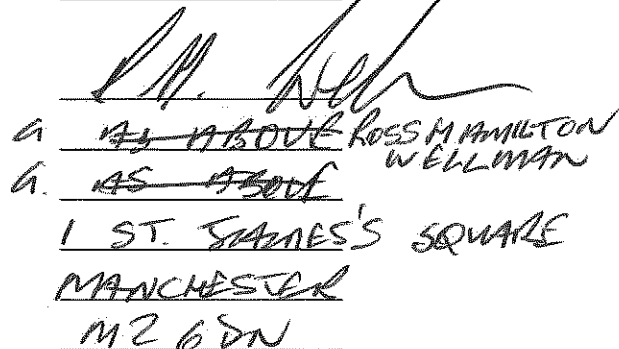 R.H. Well
a ~~AS ABOVE~~ ROSS HAMILTON
WELLMAN
a. ~~AS ABOVE~~
1 ST. JAMES'S SQUARE
MANCHESTER
M2 6DN